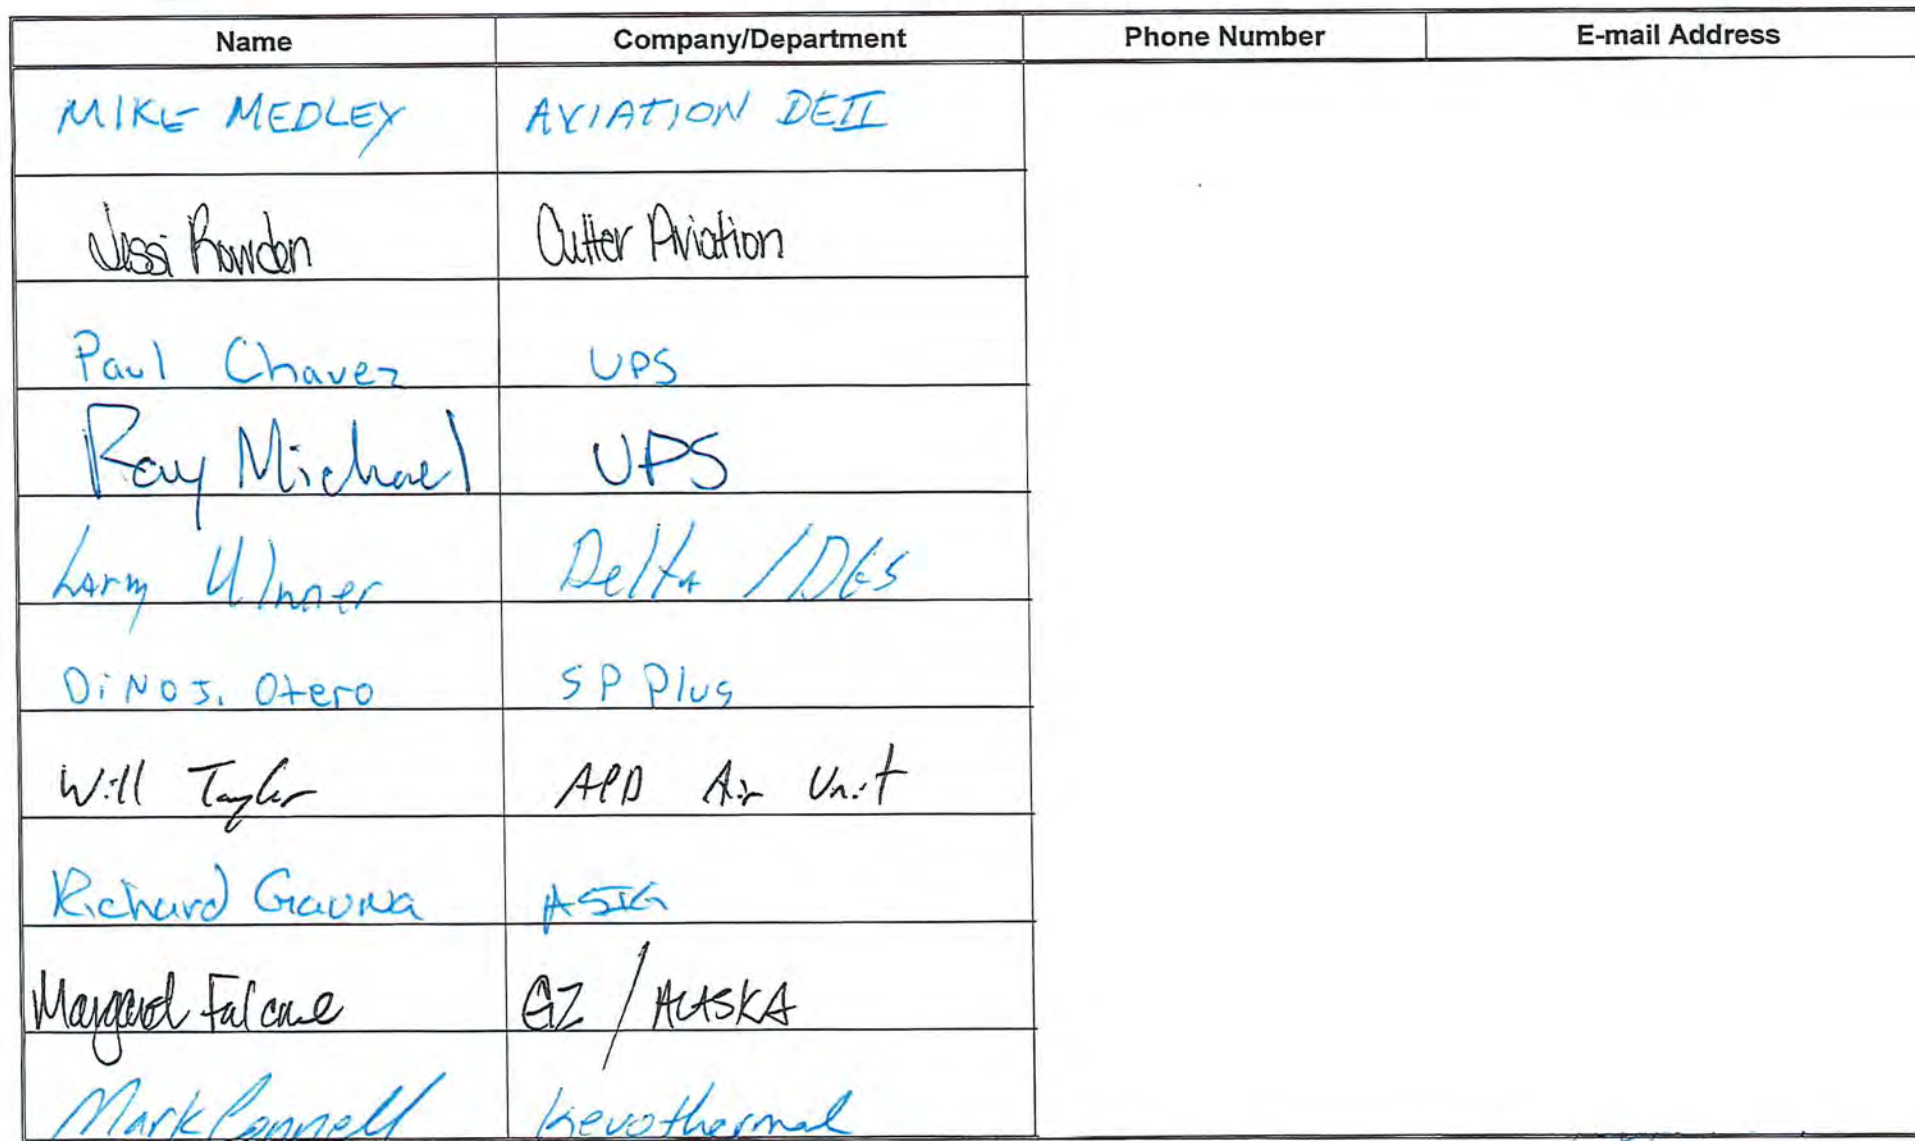 Name Company/Department Phone Number E-mail Address
MIKE MEDLEY AVIATION DEII
Jessi Rowden Cutter Aviation
Paul Chavez UPS
Ray Michael UPS
Larry Delta / DGS
DiNO J. Otero SP Plus
Will Taylor APD Air Unit
Richard Gauna ASIG
Margaret Falcone GZ / ALASKA
Mark Connell Kevothermal